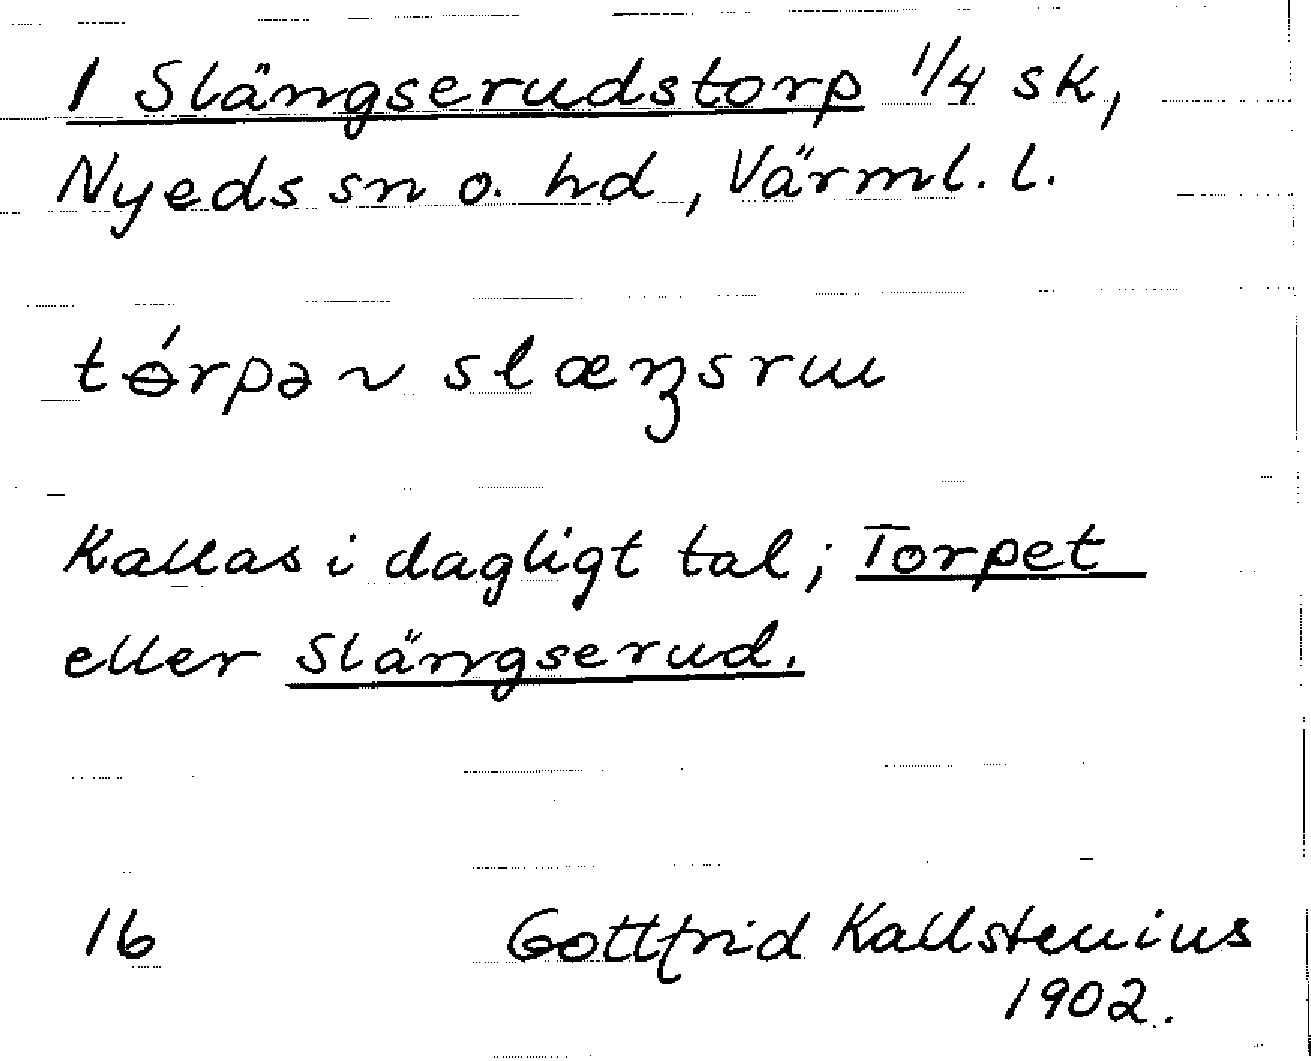 1 Slängserudstorp 1/4 sk,
Nyeds sn o. hd, Värml. l.
tɵ́rpə ~ slæŋsrɯ
Kallas i dagligt tal; Torpet
eller Slängserud.
16 Gottfrid Kallstenius
1902.